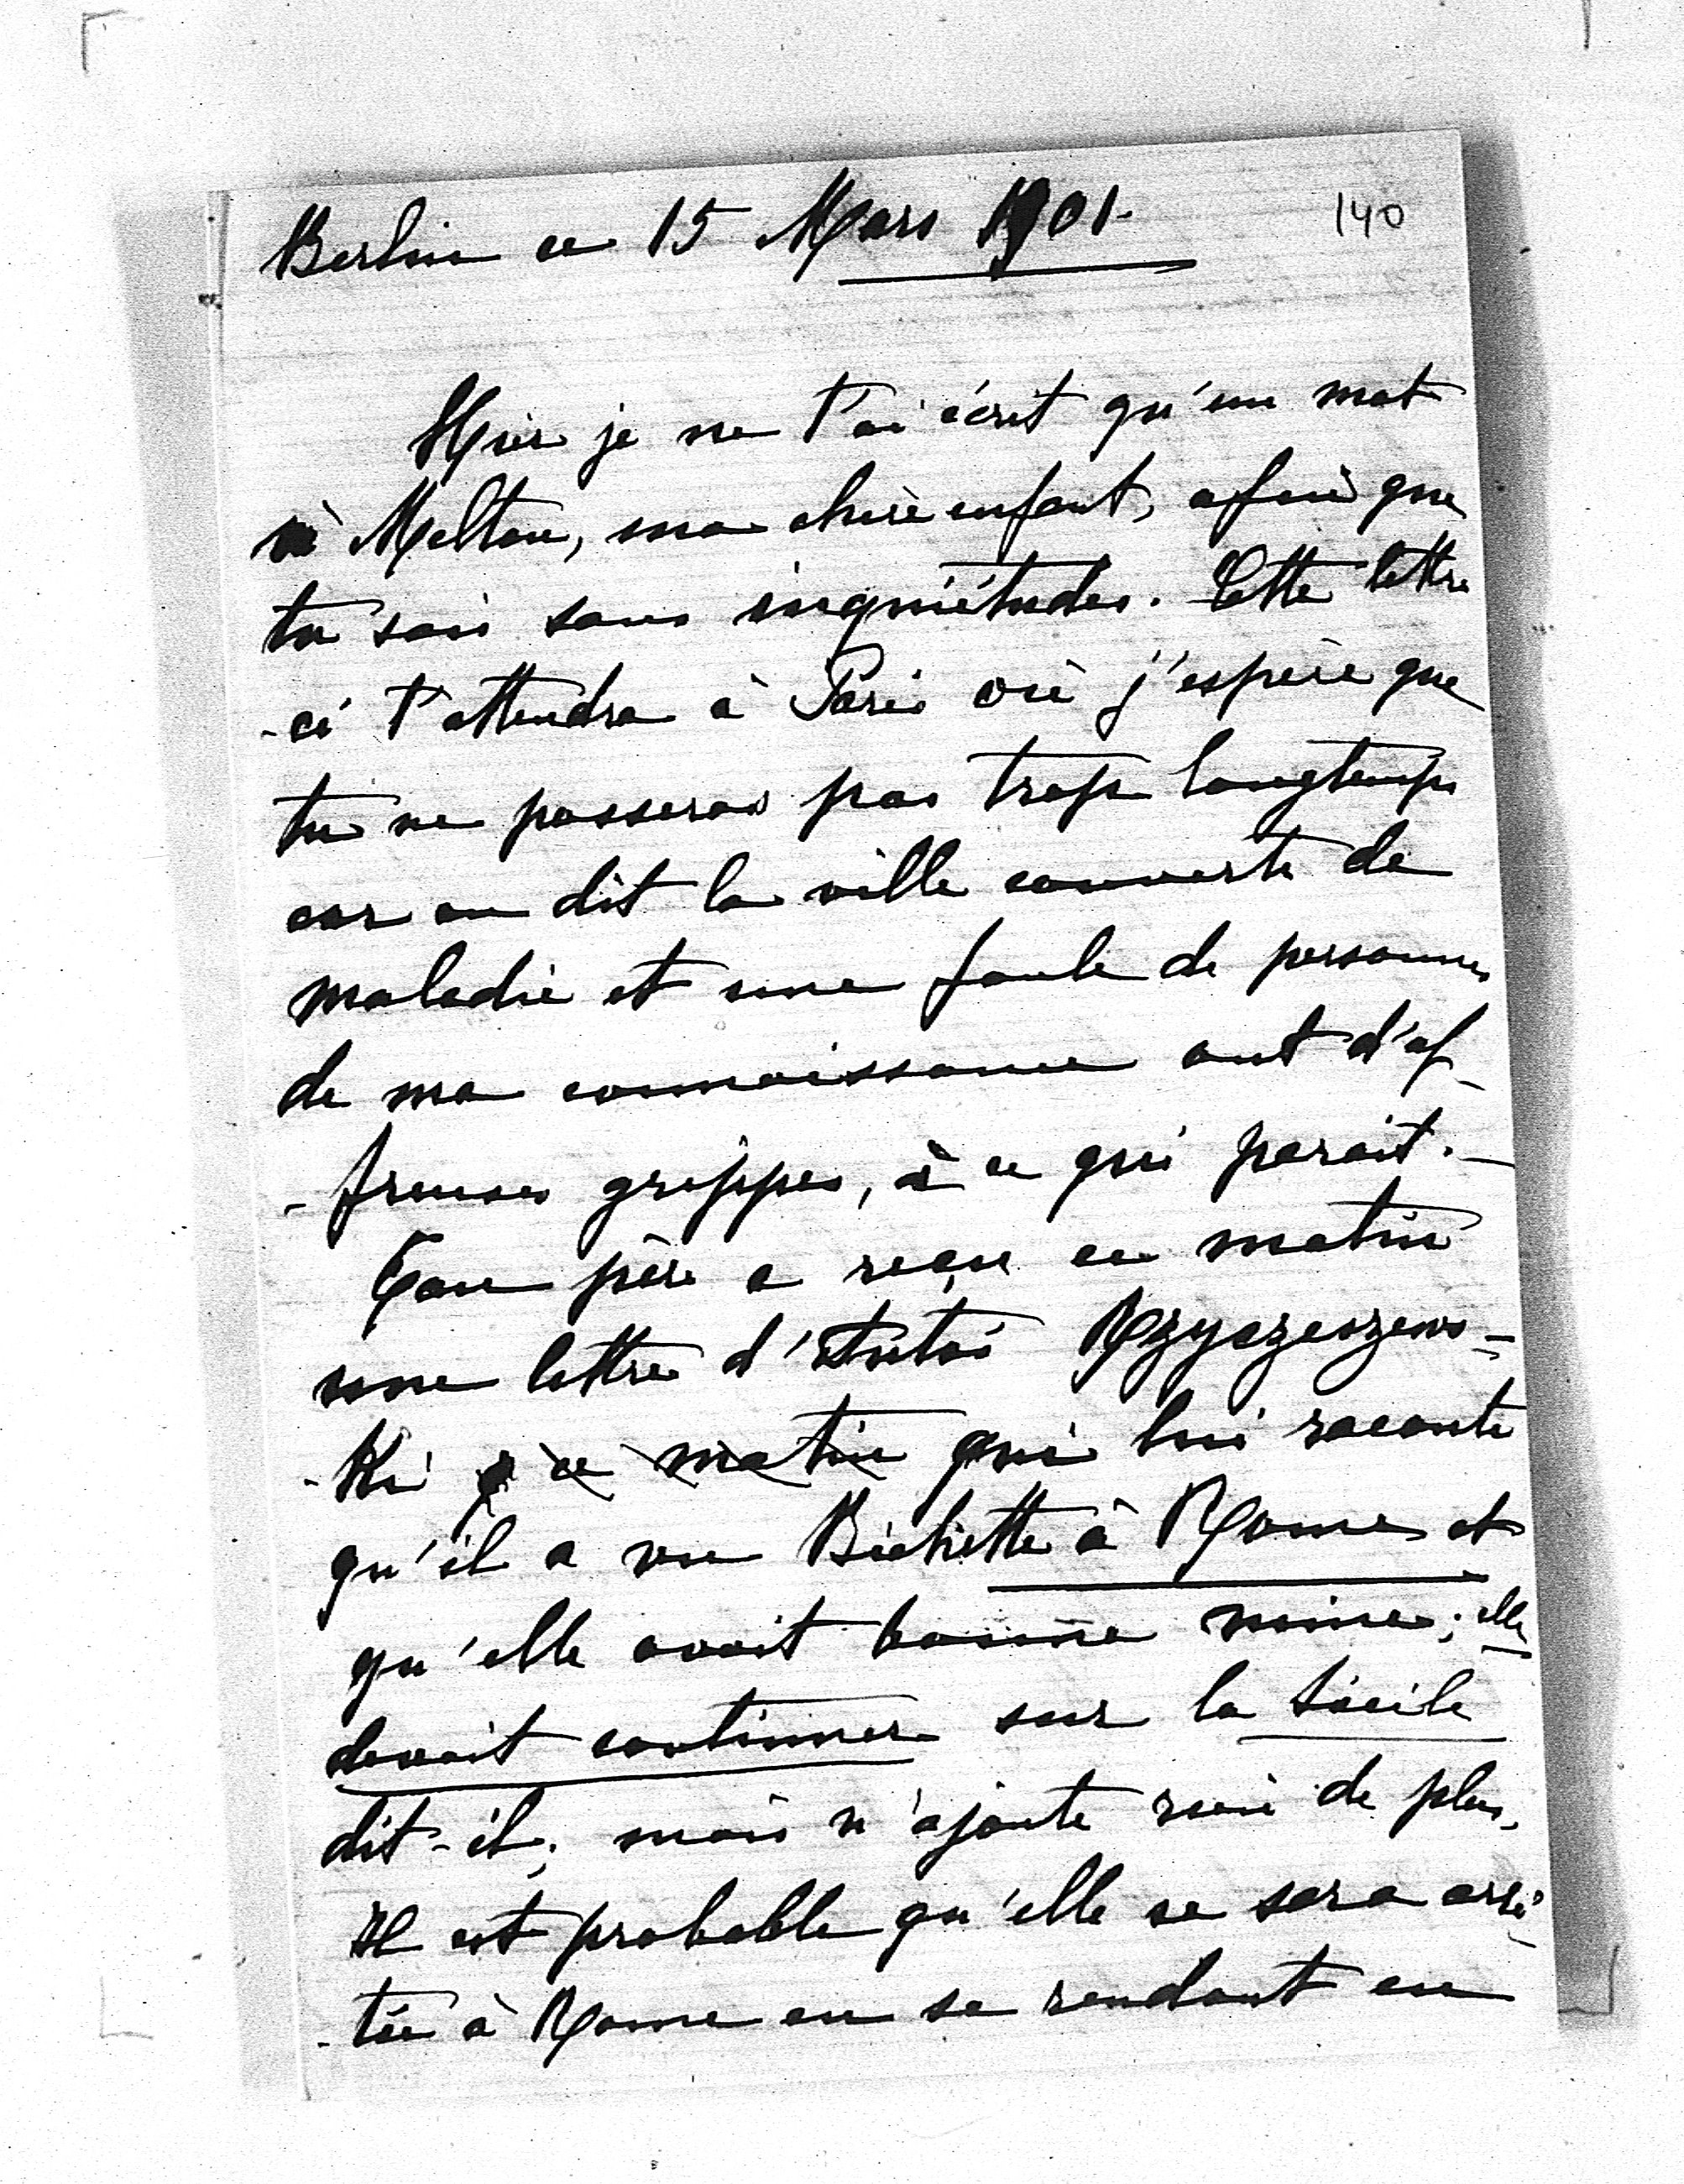 Berlin ce 15 Mars 1901.
140
Hier je ne t'ai écrit qu'un mot
à Melton, ma chère enfant, afin que
tu sois sans inquiétudes. Cette lettre
-ci t'attendra à Paris où j'espère que
tu ne passeras pas trop longtemps
car on dit la ville couverte de
maladie et une foule de personnes
de ma connaissance ont d'af-
-freuses grippes, à ce qui parait.-
Ton père a reçu ce matin
une lettre d' Rzyszczews-
-ki ce matin qui lui raconte
qu'il a vu Bichette à Rome et
qu'elle avait bonne mine; elle
devait continuer sur la Sicile
dit-il; mais n'ajoute rien de plus.
Il est probable qu'elle se sera arrê-
-tée à Rome en se rendant en